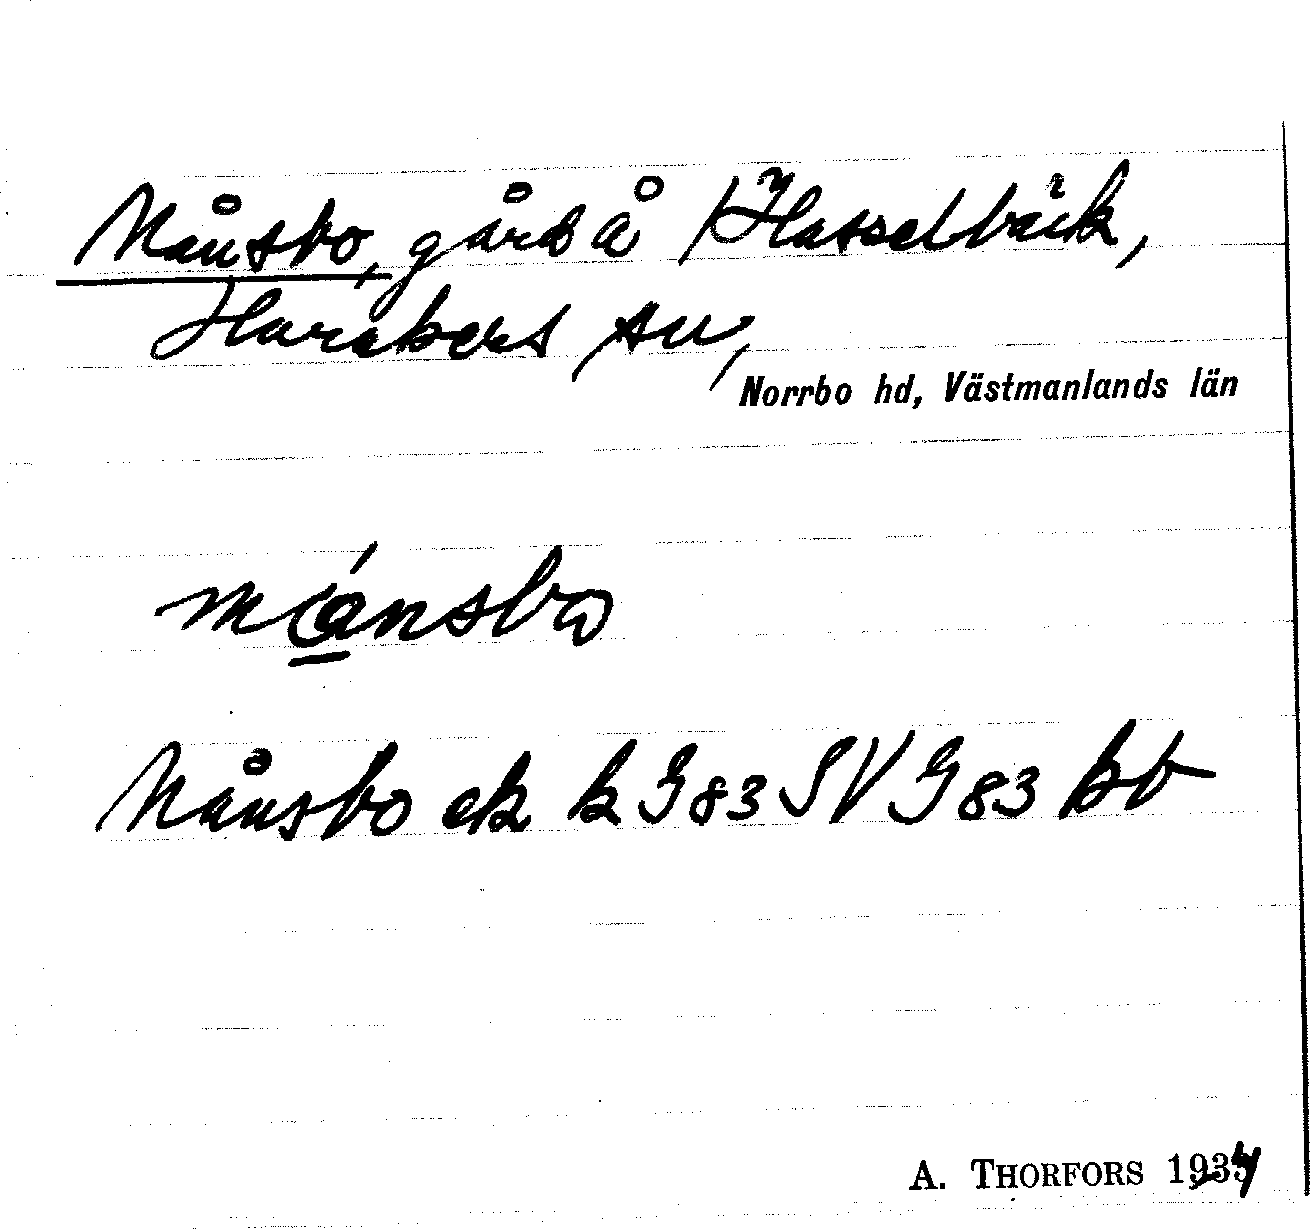 Månsbo, gård å Hasselbäck,
Haraker sn,
Norrbo hd, Västmanlands län
månsbo
Månsbo ek k G 83 SV G 83 kb
A. THORFORS 1934